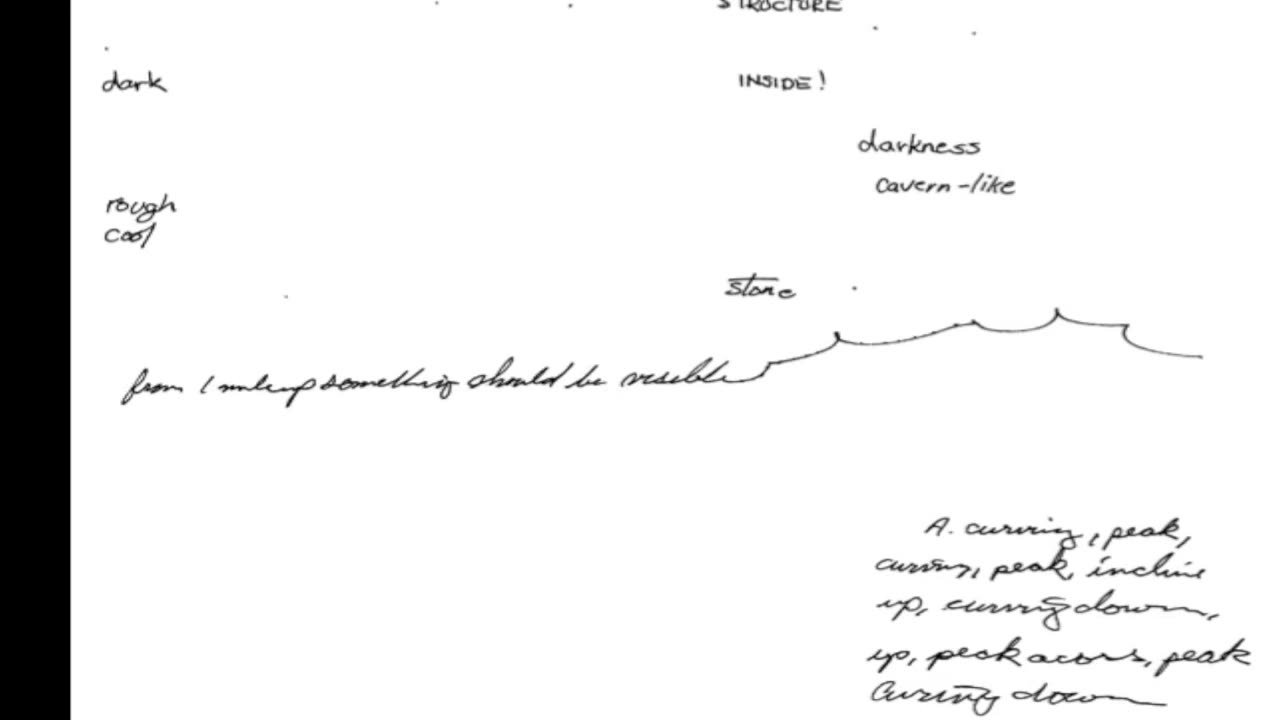 STRUCTURE
dark
INSIDE!
darkness
cavern-like
rough
cool
stone
from I makeup something should be visible
A. curving, peak,
curving, peak, incline
up, curving down,
up, peak across, peak
curving down